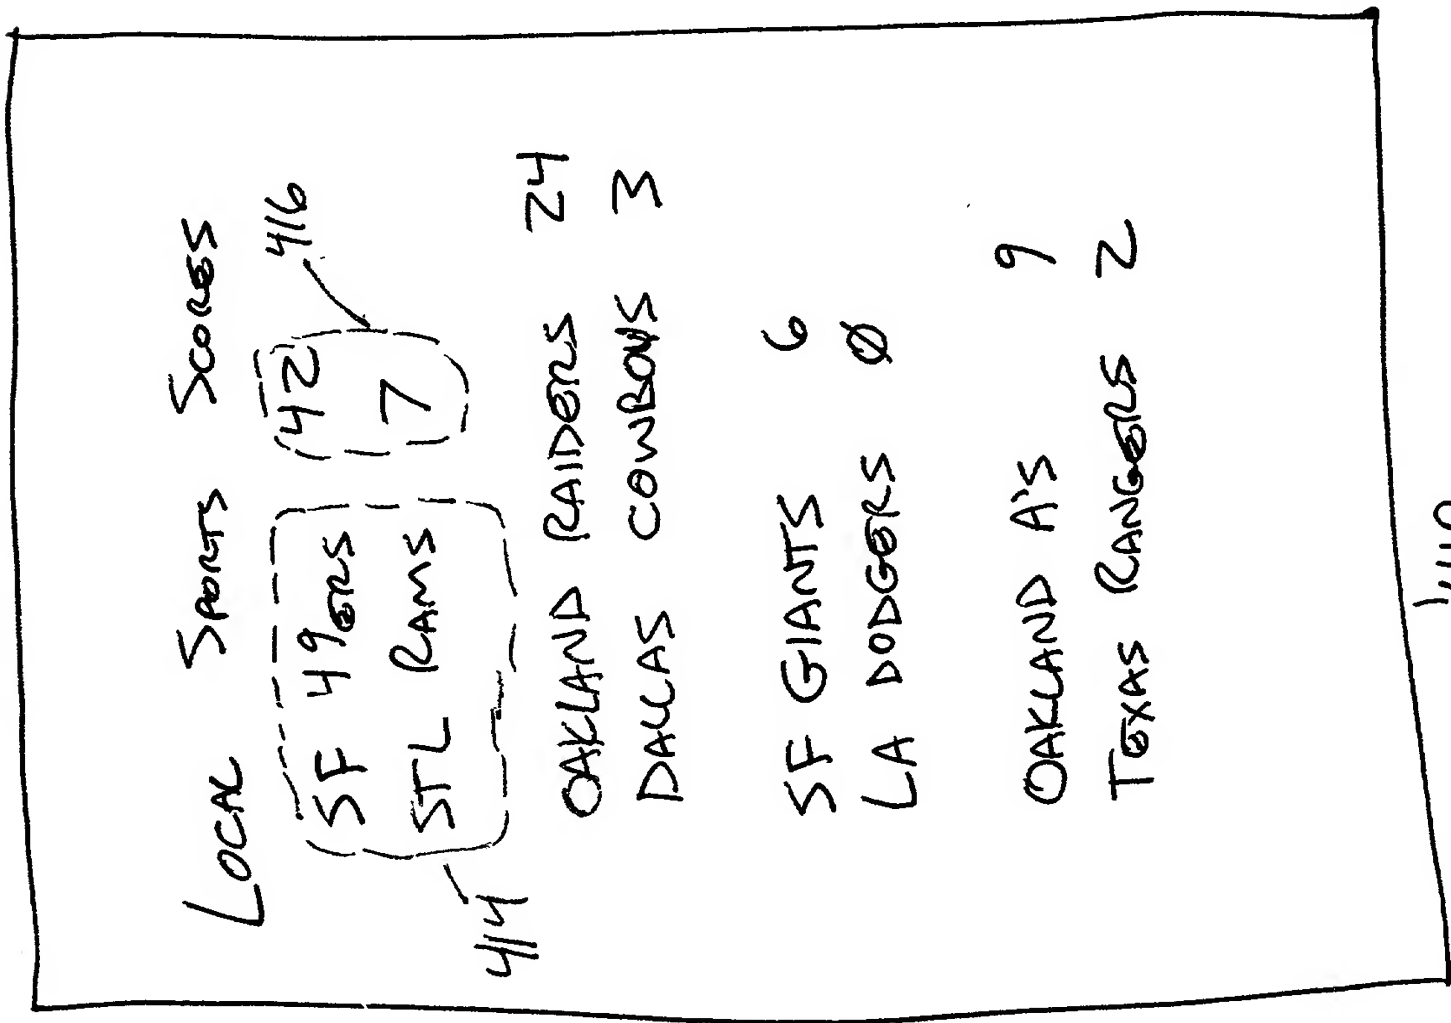 LOCAL SPORTS SCORES
416
SF 49ERS 42
STL RAMS 7
414
OAKLAND RAIDERS 24
DALLAS COWBOYS 3
SF GIANTS 6
LA DODGERS Ø
OAKLAND A'S 9
TEXAS RANGERS 2